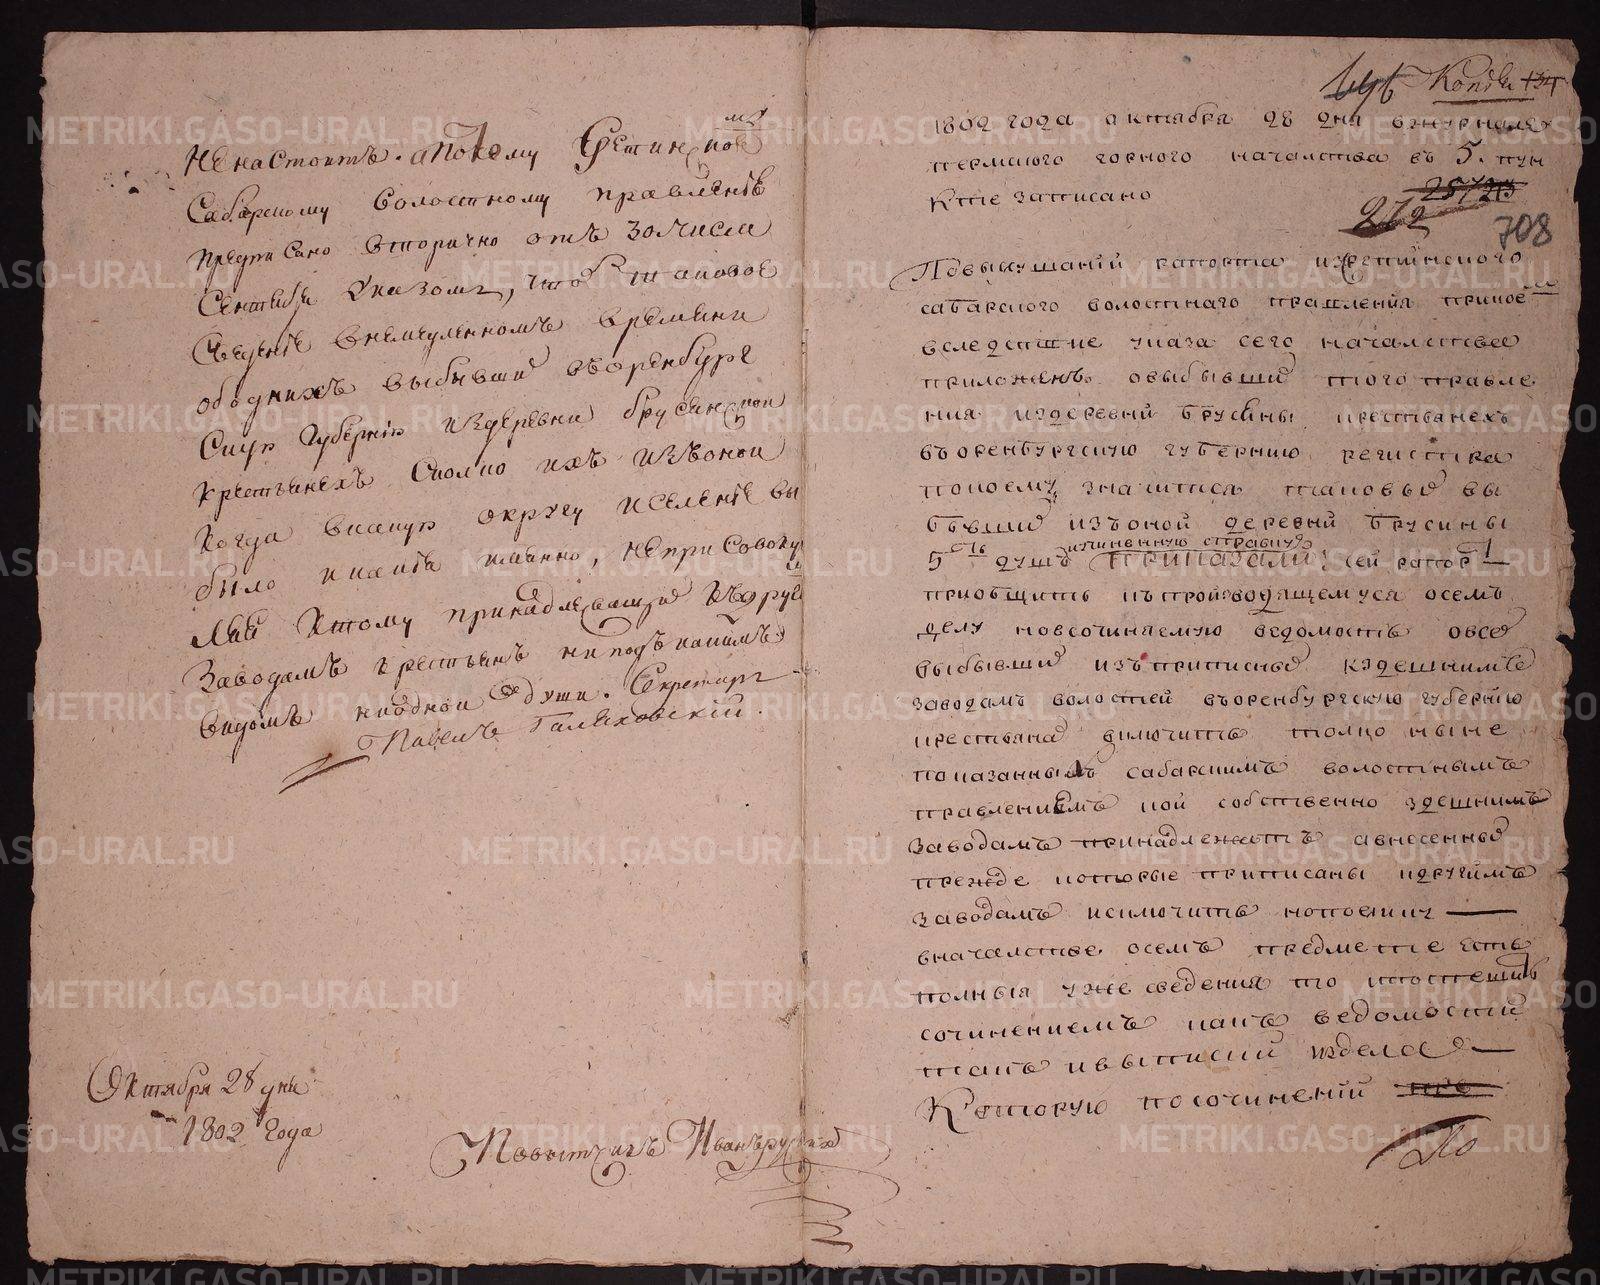 ненастоитъ. а потому
Сабарскому волостному правленіе
предписано вторично отъ 30 числа
Сентября Указомъ, чтоб таковое
сведение внемедленномъ времени
ободнихъ выбывшихъ въоренбург
скую губернію издеревни брусян
крестьянехъ сколко ихъ изъоной
когда вкакую округу и селеніе вы
было и какіе имянно, неприсовоку
ляя ктому принадлежащихъ къдруг
заводамъ крестьянъ ниподъкакимъ
видомъ ниодной души. Секретарь
Павелъ Гал ховскій.
Октября 28 дня
1802 года
Повытчикъ Иванъ
Копія 134
1802 года октября 28 дня вжурнале
пермского горного началства въ 5. пун
кте записано
25/713
272
708
Повыслушаніи рапорта
сабарского волостнаго правленія прикое
вследствие указа сего началства
приложенъ овыбывши того правле
ния издеревни брусяны крестьянехъ
въоренбургскую губернию регистръ
покоему значится таковыхъ вы
бывши изъоной деревни брусяны
5 душъ приказали: сей рапортъ
учиненную справкую
приобщить къпроизводящемуся осемъ
делу новосочиняемую ведомость овсе
выбывши изъприписныхъ кздешнимъ
заводамъ волостей въоренбургскую губернию
крестьяна включить толко ныне
показанныхъ сабарскимъ волостнымъ
правлениемъ кои собственно здешнимъ
заводамъ принадлежатъ авнесенные
прежде которые приписаны кдругимъ
заводамъ исключить ипоелику —
вначалстве осемъ предмете есть
полныя уже сведения то поспешить
сочинениемъ какъ ведомости
такъ ивыписки издела —
Которую посочинении
По